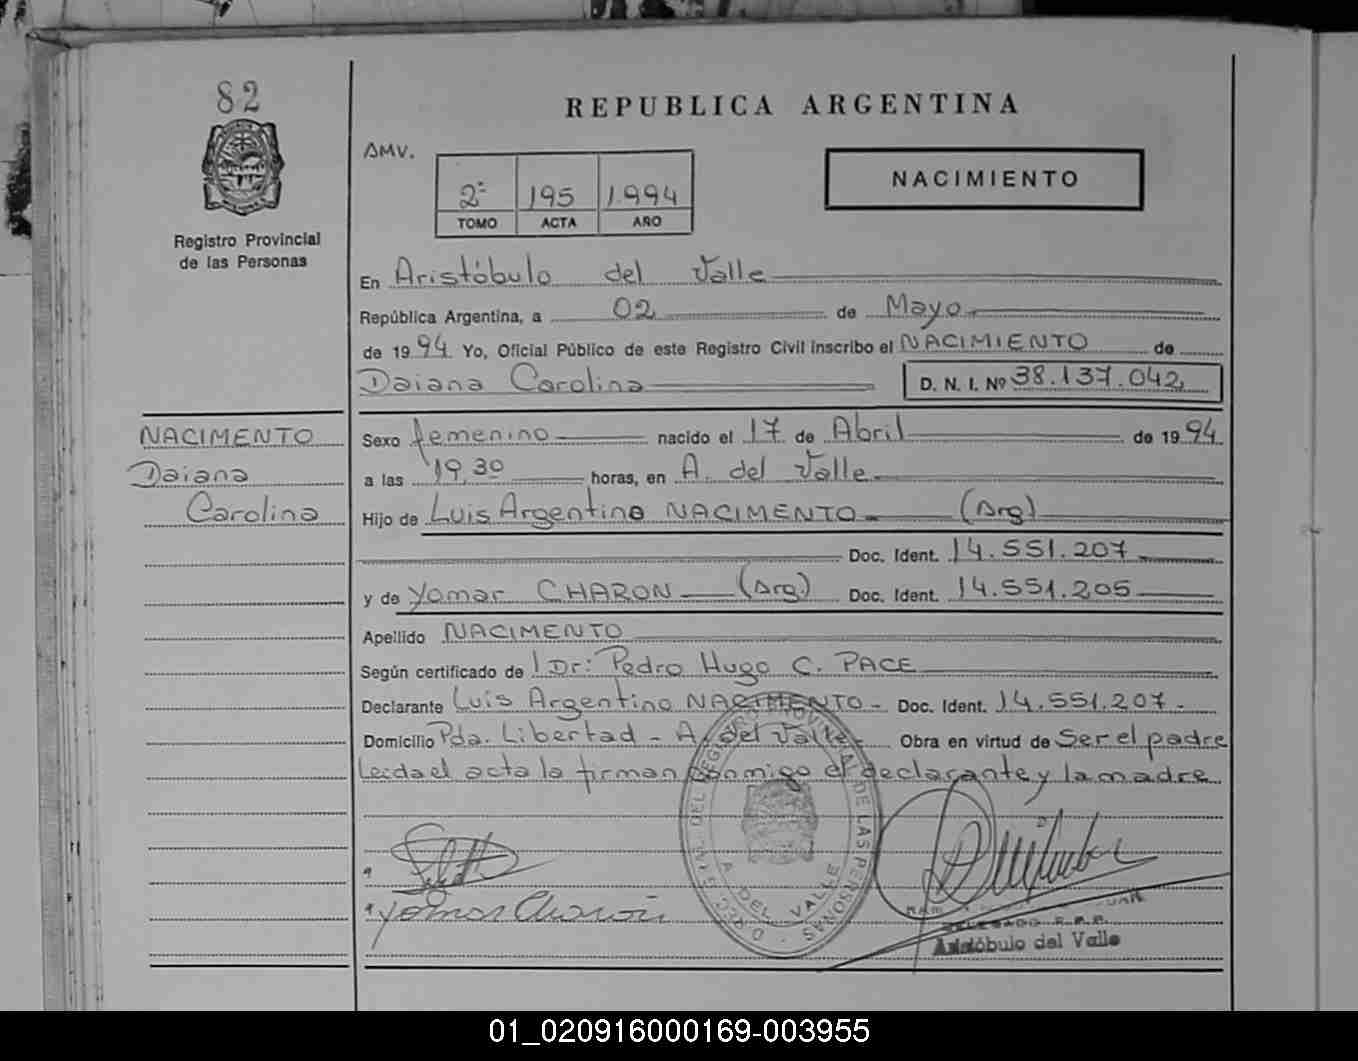 82
Registro Provincial
de las Personas
NACIMENTO
Daiana
Carolina
REPUBLICA ARGENTINA
AMV.
2ª 195 1.994
TOMO ACTA AÑO
NACIMIENTO
En Aristóbulo del Valle
República Argentina, a 02 de Mayo
de 1994 Yo, Oficial Público de este Registro Civil inscribo el NACIMIENTO de
Daiana Carolina D. N. I. Nº 38.137.042
Sexo femenino nacido el 17 de Abril de 1994
a las 19,30 horas, en A. del Valle
Hijo de Luis Argentino NACIMENTO (Arg)
Doc. Ident. 14.551.207
y de Yomar CHARON (Arg) Doc. Ident. 14.551.205
Apellido NACIMENTO
Según certificado de Dr: Pedro Hugo C. PACE
Declarante Luis Argentino NACIMENTO - Doc. Ident. 14.551.207.-
Domicilio Pda. Libertad - A. del Valle - Obra en virtud de Ser el padre
Leida el acta la firman conmigo el declarante y la madre
Yomar Charon
A. DEL VALLE
DELEGADO R.P.P.
Aristóbulo del Valle
01_020916000169-003955